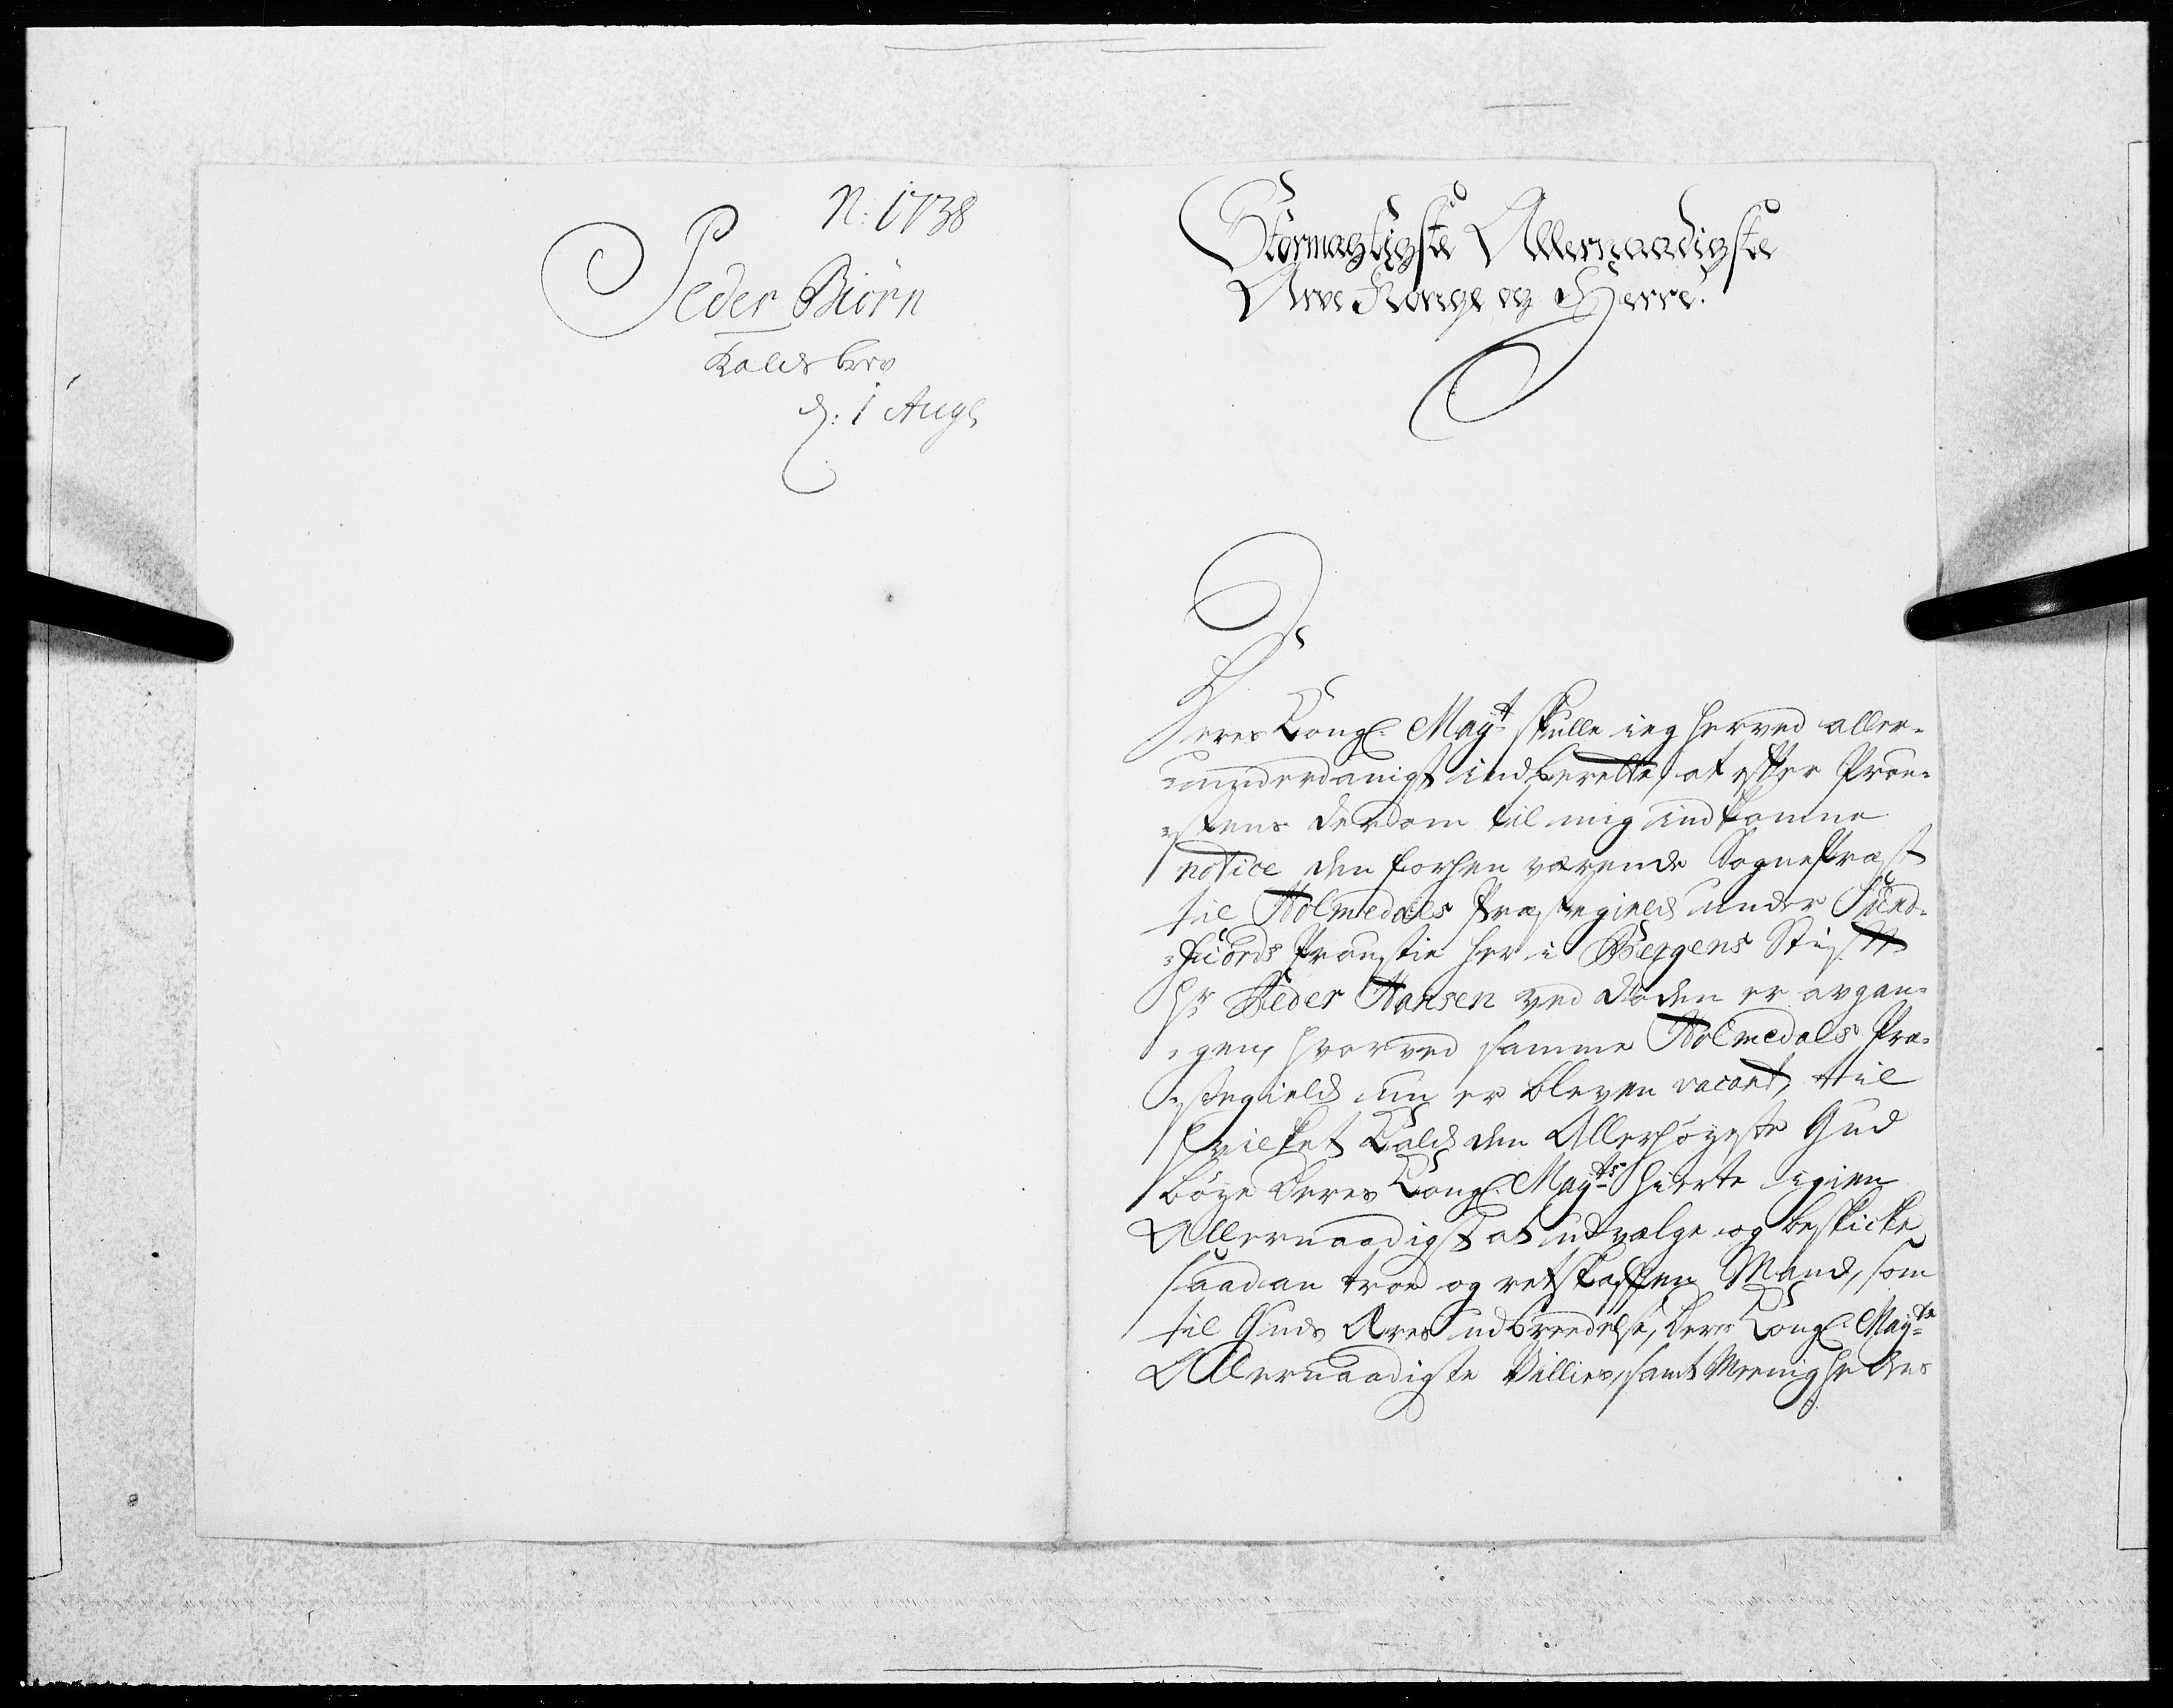 N: 1738
Peder Biörn
Kalds brev
d: 1 Aug
Stormægtigste Allernaadigste
Arve Konge og Herre!
Deres Kongl. Mayt skulle ieg herved aller-
-underdanigst indberette, at efter Pro-
-stens derom til mig indkomne
notice den forhen værende Sognepræst
til Holmedals Præstegield under Sund-
-fiords Proustie her i Bergens Stift
Hr Peder Hansen ved døden er avgan-
-gen, hvorved samme Holmedals Præ-
-stegield nu er bleven vacant, til
hvilket Kald den Allerhöyeste Gud
böye Deres Kongl. Mayts hierte igien
Allernaadigst at udvælge og beskicke
saadan troe og retskaffen Mand, som
til Guds Æres udbreedelse, Deres Kongl. Mayts
Allernaadigste Villies, samt Menighedens